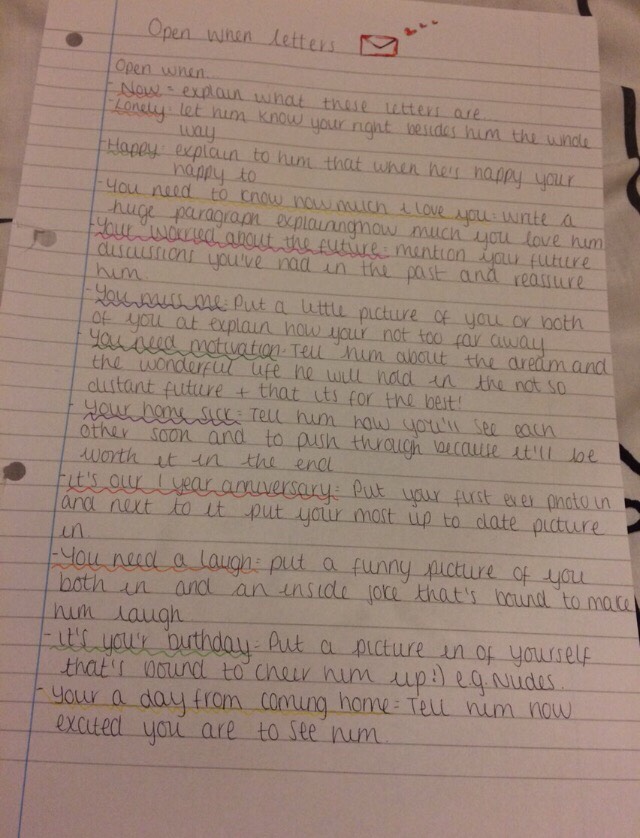 Open when letters
Open when
- Now = explain what these letters are
- Lonely = let him know your right besides him the whole
way
- Happy = explain to him that when he's happy your
happy to
- You need to know how much i love you = write a
huge paragraph explaining how much you love him
- Your worried about the future = mention your future
discussions you've had in the past and reassure
him
- You miss me = Put a little picture of you or both
of you at explain how your not too far away
- You need motivation = Tell him about the dream and
the wonderful life he will hold in the not so
distant future + that its for the best!
- Your home sick = Tell him how you'll see each
other soon and to push through because it'll be
worth it in the end
- it's our 1 year anniversary = Put your first ever photo in
and next to it put your most up to date picture
in.
- You need a laugh = put a funny picture of you
both in and an inside joke that's bound to make
him laugh
- it's you'r birthday = Put a picture in of yourself
that's bound to cheer him up :) e.g. Nudes.
- Your a day from coming home = Tell him how
excited you are to see him